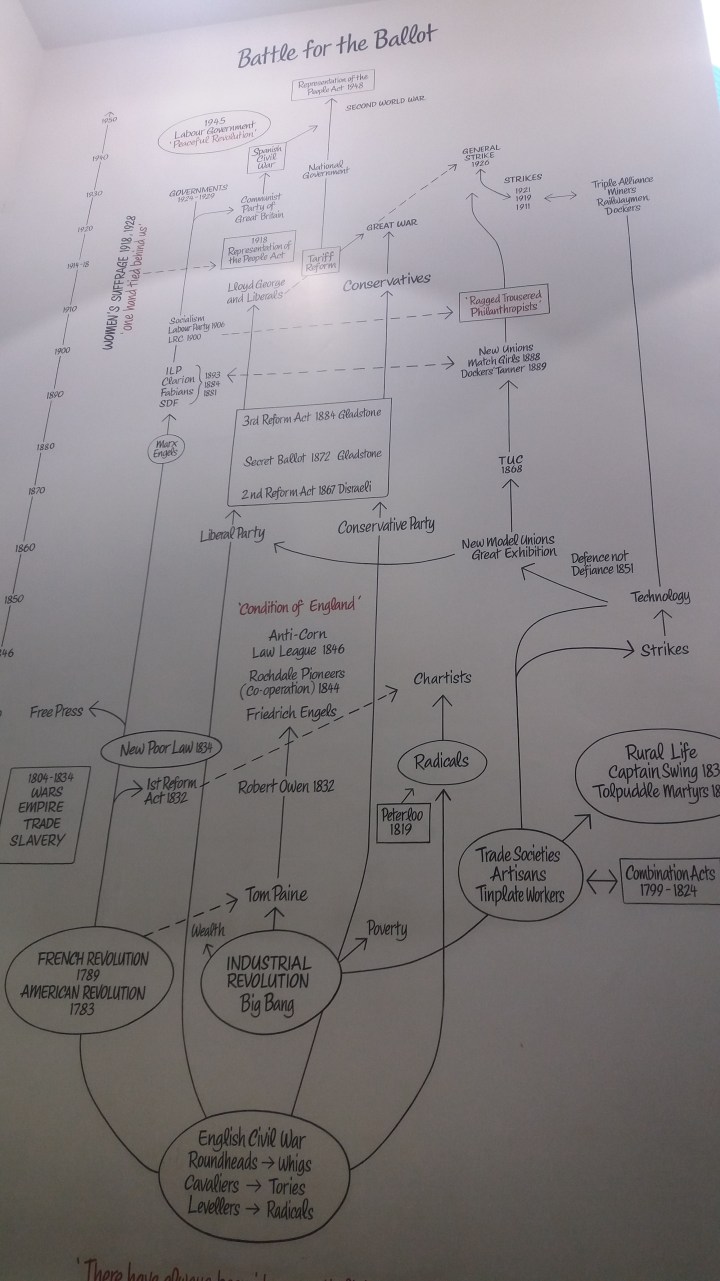 Battle for the Ballot
Representation of the
People Act 1948
SECOND WORLD WAR
1945
Labour Government
'Peaceful Revolution'
Spanish
Civil
War
National
Government
GENERAL
STRIKE
1926
STRIKES
1921
1919
1911
Triple Alliance
Miners
Railwaymen
Dockers
GOVERNMENTS
1924-1929
Communist
Party of
Great Britain
GREAT WAR
1918
Representation of
the People Act
Tariff
Reform
Lloyd George
and Liberals
Conservatives
WOMEN'S SUFFRAGE 1918, 1928
'one hand tied behind us'
1950
1940
1930
1920
1914-18
1910
1900
1890
1880
1870
1860
1850
46
'Ragged Trousered
Philanthropists'
Socialism
Labour Party 1906
LRC 1900
New Unions
Match Girls 1888
Dockers' Tanner 1889
ILP
Clarion
Fabians
SDF
1893
1884
1881
3rd Reform Act 1884 Gladstone
Secret Ballot 1872 Gladstone
2nd Reform Act 1867 Disraeli
Marx
Engels
TUC
1868
Liberal Party
Conservative Party
New Model Unions
Great Exhibition
Defence not
Defiance 1851
Technology
Strikes
'Condition of England'
Anti-Corn
Law League 1846
Rochdale Pioneers
(Co-operation) 1844
Friedrich Engels
Chartists
Free Press
New Poor Law 1834
1st Reform
Act 1832
Robert Owen 1832
Radicals
Peterloo
1819
Rural Life
Captain Swing 183
Tolpuddle Martyrs 18
1804-1834
WARS
EMPIRE
TRADE
SLAVERY
Trade Societies
Artisans
Tinplate Workers
Combination Acts
1799-1824
Tom Paine
Wealth
Poverty
FRENCH REVOLUTION
1789
AMERICAN REVOLUTION
1783
INDUSTRIAL
REVOLUTION
Big Bang
English Civil War
Roundheads → Whigs
Cavaliers → Tories
Levellers → Radicals
'There have always been